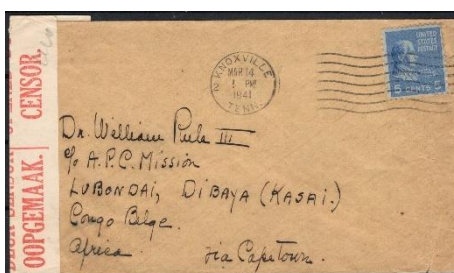 CENSOR.
OOPGEMAAK.
KNOXVILLE
2
MAR 14
PM
1941
TENN.
UNITED
STATES
POSTAGE
5 CENTS 5
Dr. William Rule III
c/o A.P.C. Mission
LUBONDAI, DIBAYA (KASAI.)
Congo Belge.
Africa via Capetown.